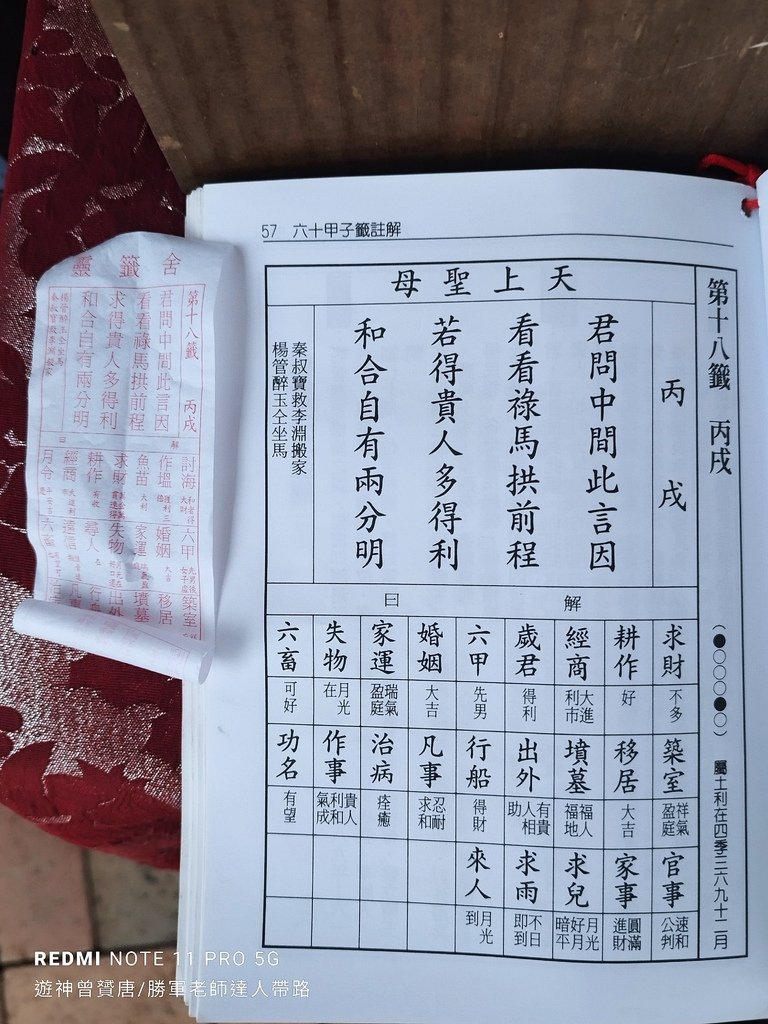 57 六十甲子籤註解
第十八籤 丙戌
(●○○○●○)
屬土利在四季三六九十二月
天上聖母
丙戌
君問中間此言因
看看祿馬拱前程
若得貴人多得利
和合自有兩分明
秦叔寶救李淵搬家
楊管醉玉仝坐馬
解曰
求財 不多
耕作 好
經商 大進利市
歲君 得利
六甲 先男
婚姻 大吉
家運 瑞氣盈庭
失物 月光在
六畜 可好
築室 祥氣盈庭
移居 大吉
墳墓 福人福地
出外 有貴人相助
行船 得財
凡事 忍耐求和
治病 痊癒
作事 貴人利和氣成
功名 有望
官事 速和公判
家事 圓滿進財
求兒 月光好月暗平
求雨 不日即到
來人 月光到
舍籤靈
第十八籤 丙戌
君問中間此言因
看看祿馬拱前程
求得貴人多得利
和合自有兩分明
解曰
討海
作塭
魚苗 大利
求財
耕作 有收
經商
月令
六甲
婚姻 大吉
家運
失物
尋人
遠信
六畜
築室
移居
墳墓
出外
REDMI NOTE 11 PRO 5G
遊神曾贇唐/勝軍老師達人帶路